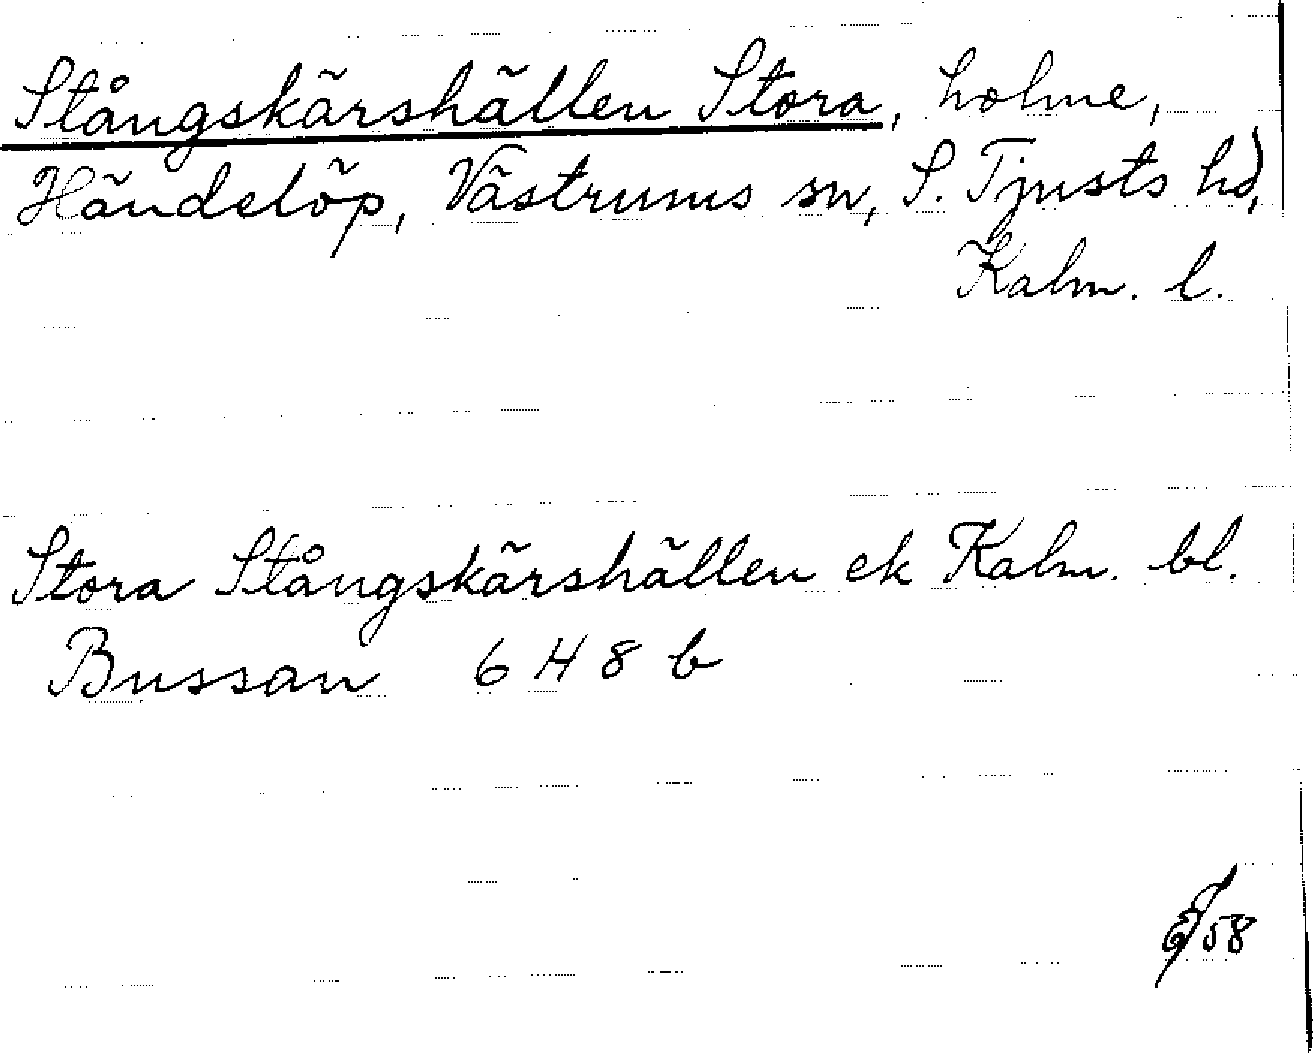 Stångskärshällen Stora, holme,
Händelöp, Västrums sn, S. Tjusts hd,
Kalm. l.
Stora Stångskärshällen ek Kalm. bl.
Bussan 6 H 8 b
58